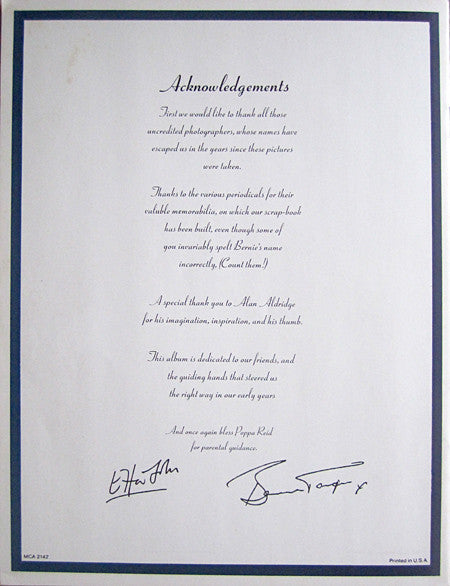 Acknowledgements
First we would like to thank all those
uncredited photographers, whose names have
escaped us in the years since these pictures
were taken.
Thanks to the various periodicals for their
valuble memorabilia, on which our scrap-book
has been built, even though some of
you invariably spelt Bernie's name
incorrectly, (Count them!)
A special thank you to Alan Aldridge
for his imagination, inspiration, and his thumb.
This album is dedicated to our friends, and
the guiding hands that steered us
the right way in our early years
And once again bless Poppa Reid
for parental guidance.
Elton John
Bernie Taupin x
MCA 2142
Printed in U.S.A.